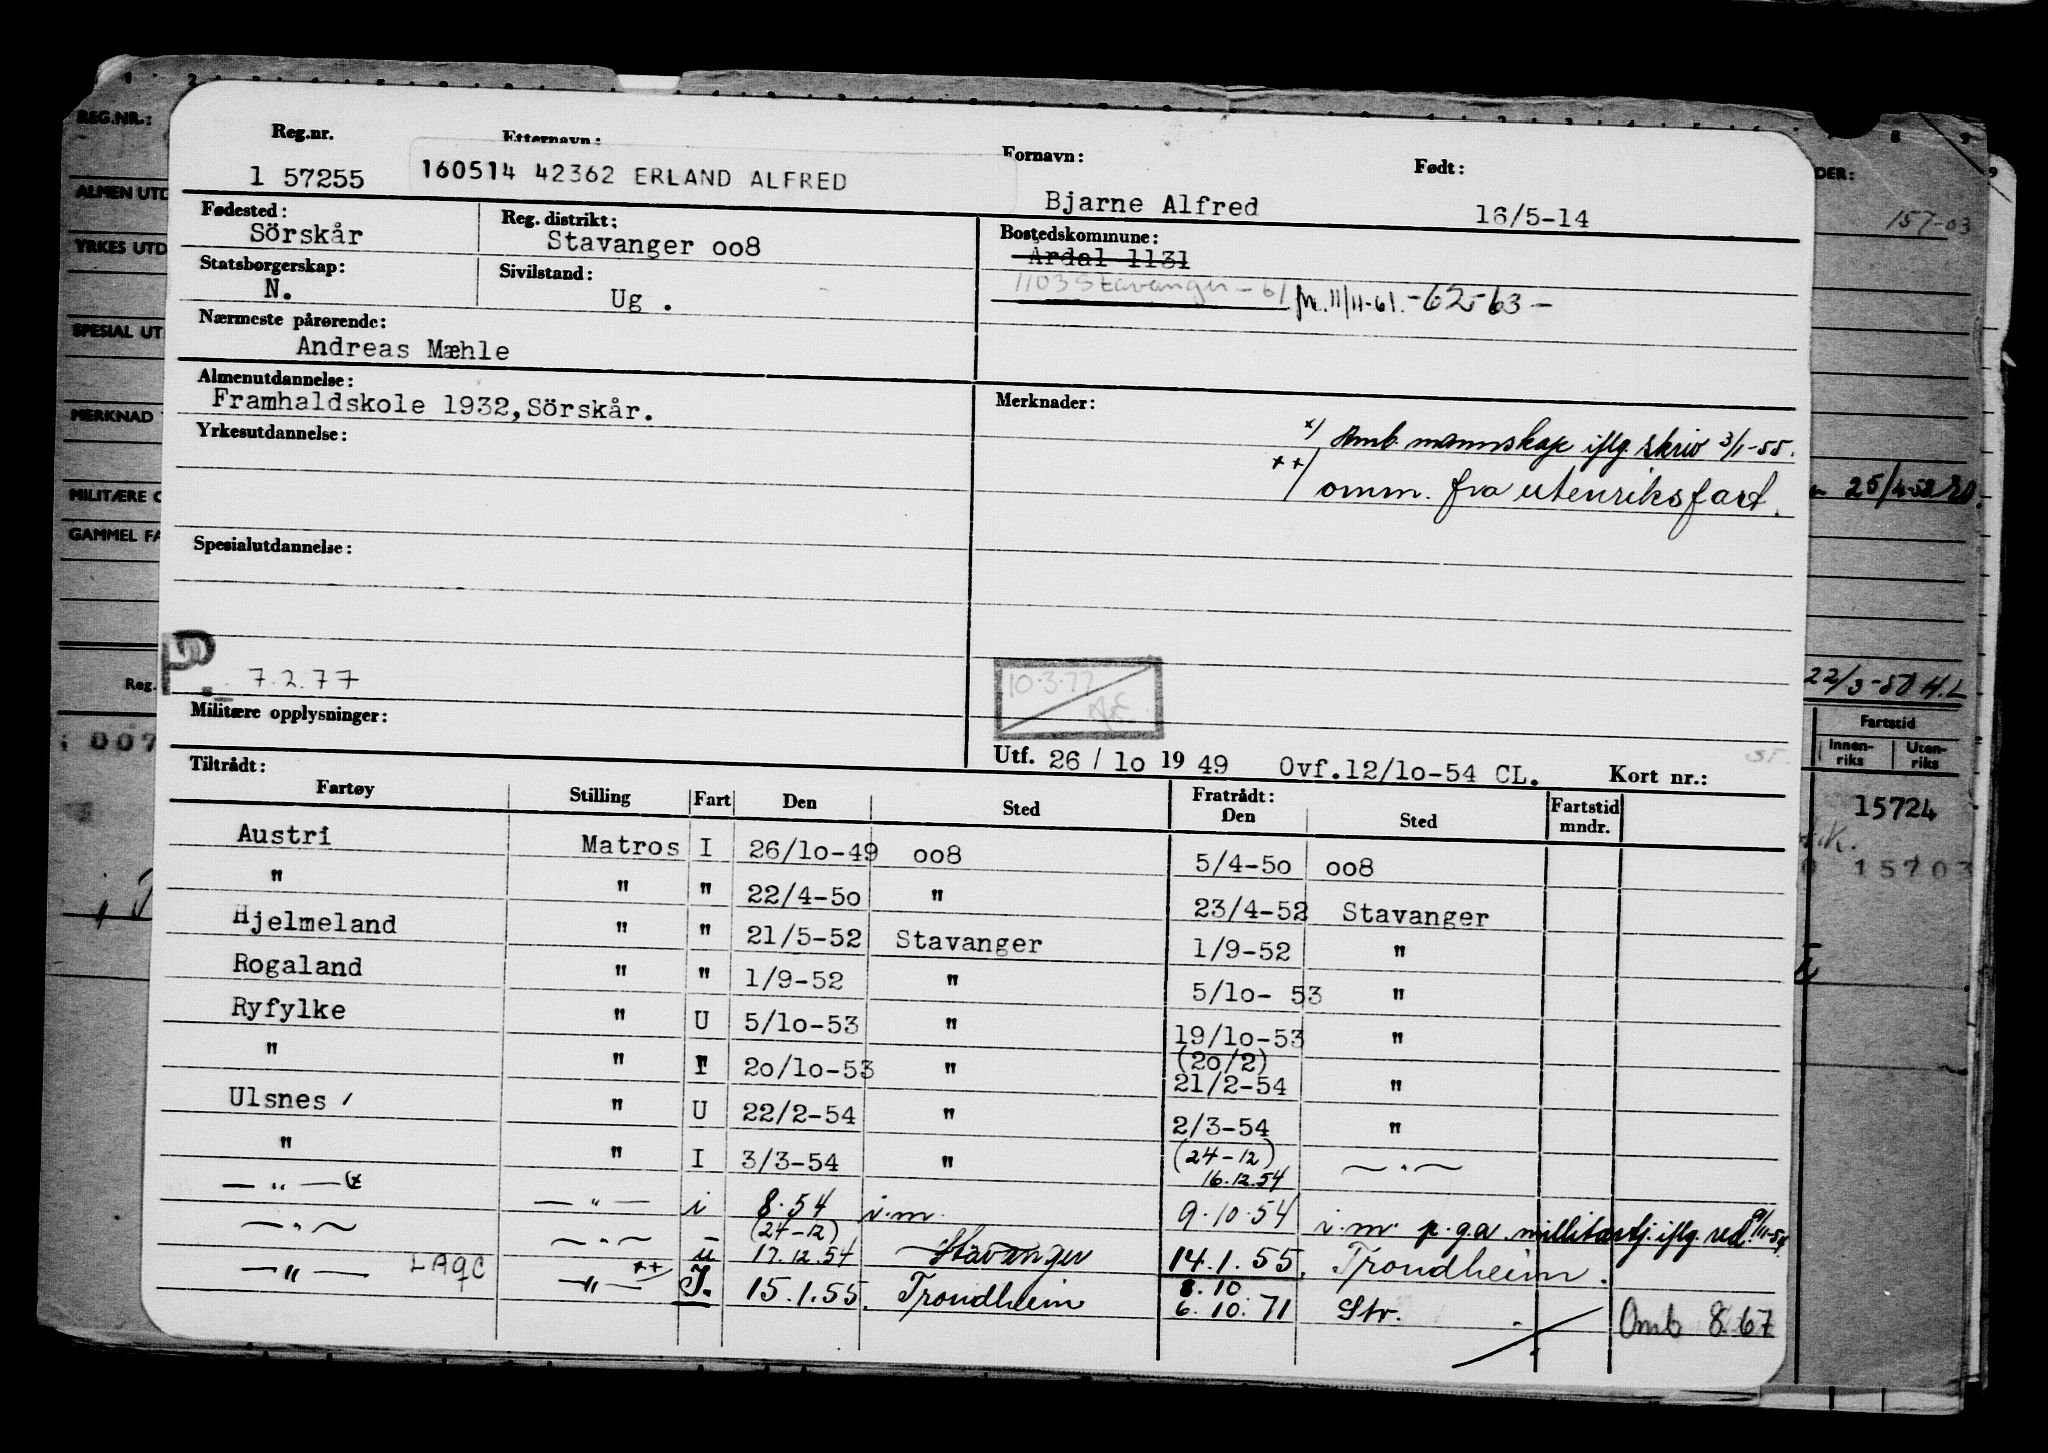 REG.NR.:
ALMEN UTD
YRKES UTD
SPESIAL UT
MERKNAD
MILITÆRE O
GAMMEL FA
Reg.
007
Reg.nr. Etternavn: Fornavn: Født:
1 57255 160514 42362 ERLAND ALFRED Bjarne Alfred 16/5-14
Fødested: Reg. distrikt: Bostedskommune:
Sörskår Stavanger oo8 Årdal 1131
Statsborgerskap: Sivilstand: 1103 Stavanger - 61 fr. 11/11-61. -62-63-
N. Ug .
Nærmeste pårørende:
Andreas Mæhle
Almenutdannelse: Merknader:
Framhaldskole 1932, Sörskår.
x) Omb. mannskap iflg. skriv 3/1-55.
Yrkesutdannelse:
++/ omm. fra utenriksfart.
Spesialutdannelse:
P. 7.2.77
10.3.77
Militære opplysninger:
Utf. 26/1o 19 49 Ovf.12/1o-54 CL. Kort nr.:
Tiltrådt: Fratrådt:
Fartøy Stilling Fart Den Sted Den Sted Fartstid mndr.
Austri Matros I 26/1o-49 oo8 5/4-5o oo8
" " " 22/4-5o " 23/4-52 Stavanger
Hjelmeland " " 21/5-52 Stavanger 1/9-52 "
Rogaland " " 1/9-52 " 5/1o- 53 "
Ryfylke " U 5/1o-53 " 19/1o-53 "
(2o/2)
" " I 2o/1o-53 " 21/2-54 "
Ulsnes " U 22/2-54 " 2/3-54 "
(24-12)
" " I 3/3-54 " 16.12.54 — " —
— " — — " — i 8.54 i.m. 9.10.54 i.m. p.g.a. millitærtj. iflg. red. 9/11-54
(24-12)
— " — — " — u 17.12.54 Stavanger 14.1.55. Trondheim.
8.10
— " — LAQC — " — ++ I. 15.1.55. Trondheim 6.10.71 Stv. Omb 8.67
DER:
157-03
25/4-52
22/3-50 H.L
Fartstid
Innen-riks Uten-riks
15724
15703